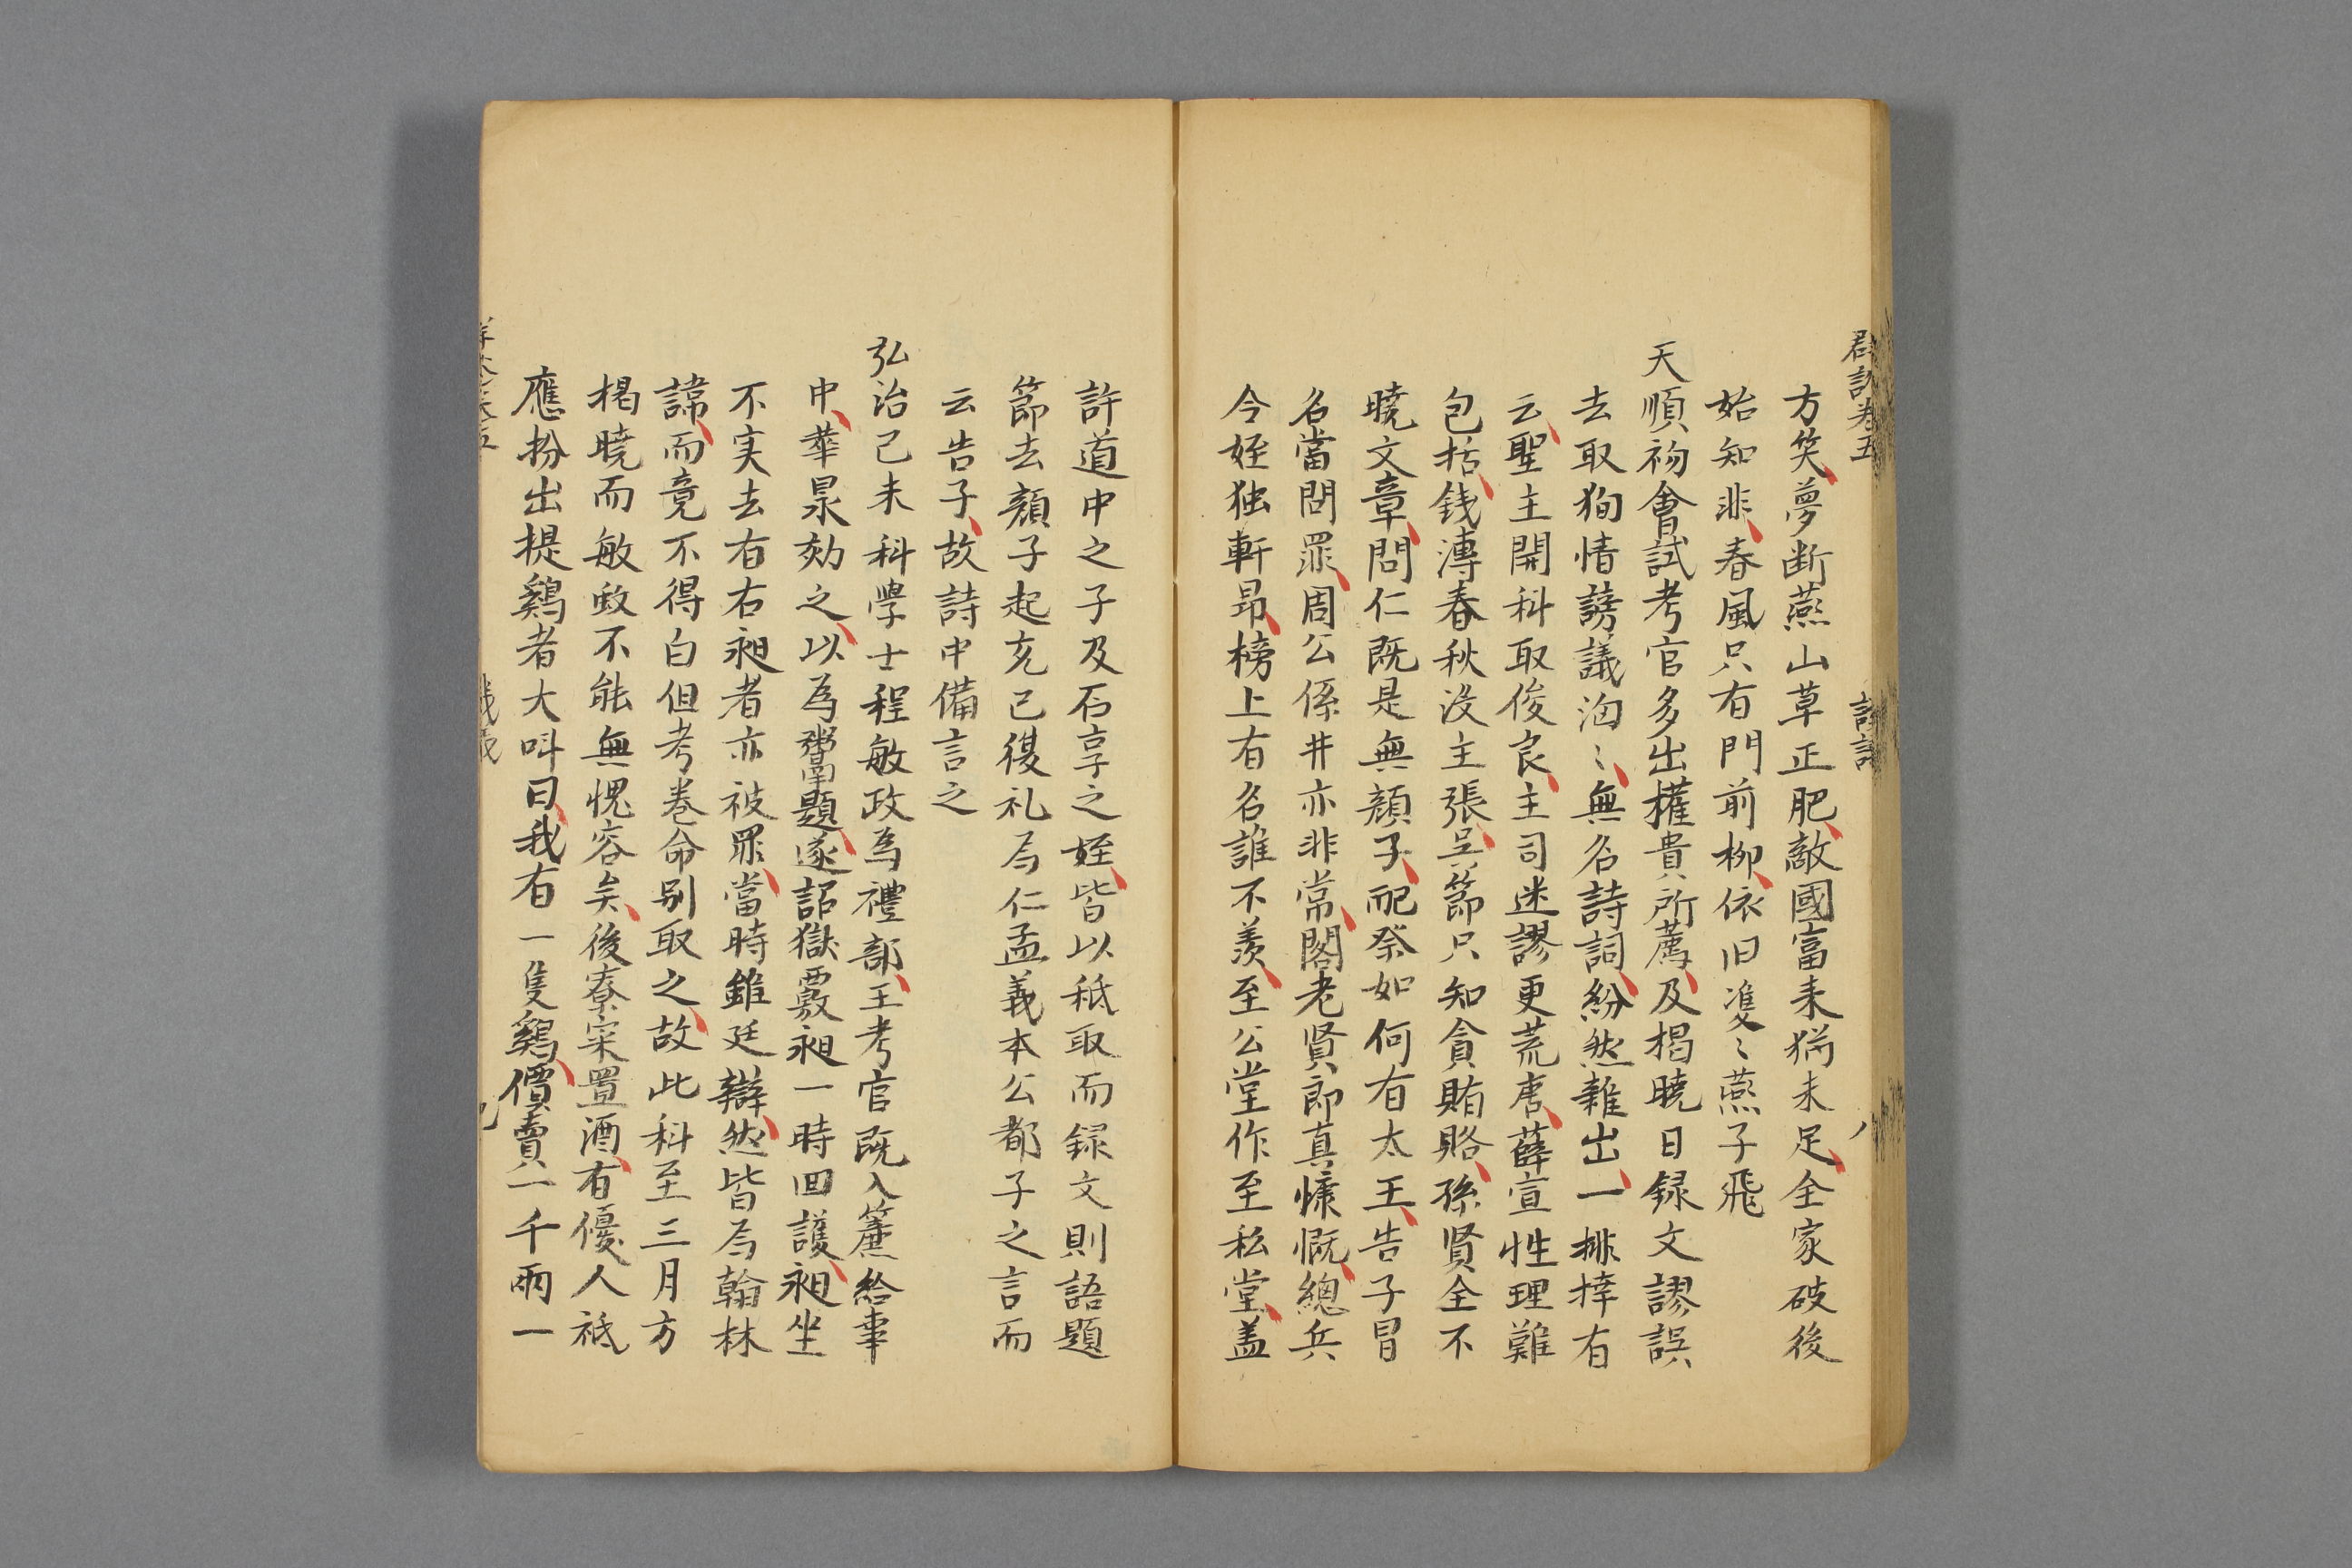 群談卷五
八
方笑夢断燕山草正肥敵國富来猶未足全家破後
始知非春風只有門前柳依旧雙〻燕子飛
天順初會試考官多出權貴所薦及揭曉日録文謬誤
去取狥情謗議洶〻無名詩詞紛然雜出一排律有
云聖主開科取俊良主司迷謬更荒唐薛宣性理難
包括錢溥春秋没主張吴節只知貪賄賂孫賢全不
曉文章問仁既是無顔子配祭如何有太王告子冒
名當問罪周公係井亦非常閣老賢郎真慷慨總兵
令姪独軒昂榜上有名誰不羡至公堂作至私堂盖
許道中之子及石享之姪皆以秪取而録文則語題
節去顔子起克己復礼為仁孟義本公都子之言而
云告子故詩中備言之
弘治己未科學士程敏政為禮部王考官既入簾給事
中華㫤劾之以為鬻題遂詔獄覈昶一時回護昶坐
不实去右右昶者亦被罪當時錐廷辯然皆為翰林
諱而竟不得白但考卷命别取之故此科至三月方
揭曉而敏政不能無愧容矣後寮寀置酒有優人祇
應扮出提鷄者大呌曰我有一隻鷄價賣一千兩一